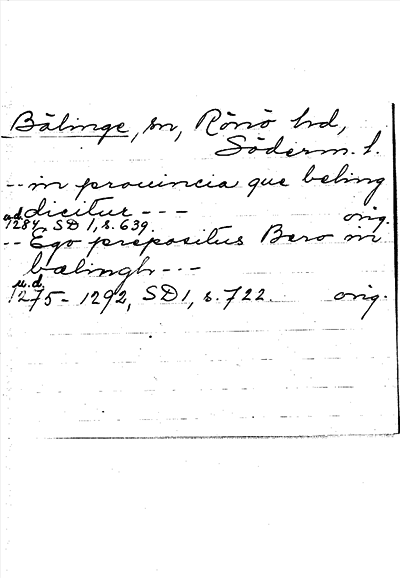 Bälinge, sn, Rönö hd,
Söderm. l.
-- in prouincia que beling
dicitur ---
u.d. 1284 SD 1, s. 639. orig.
-- Ego prepositus Bero in
bælingh ---
u.d.
1275-1292, SD 1, s. 722. orig.